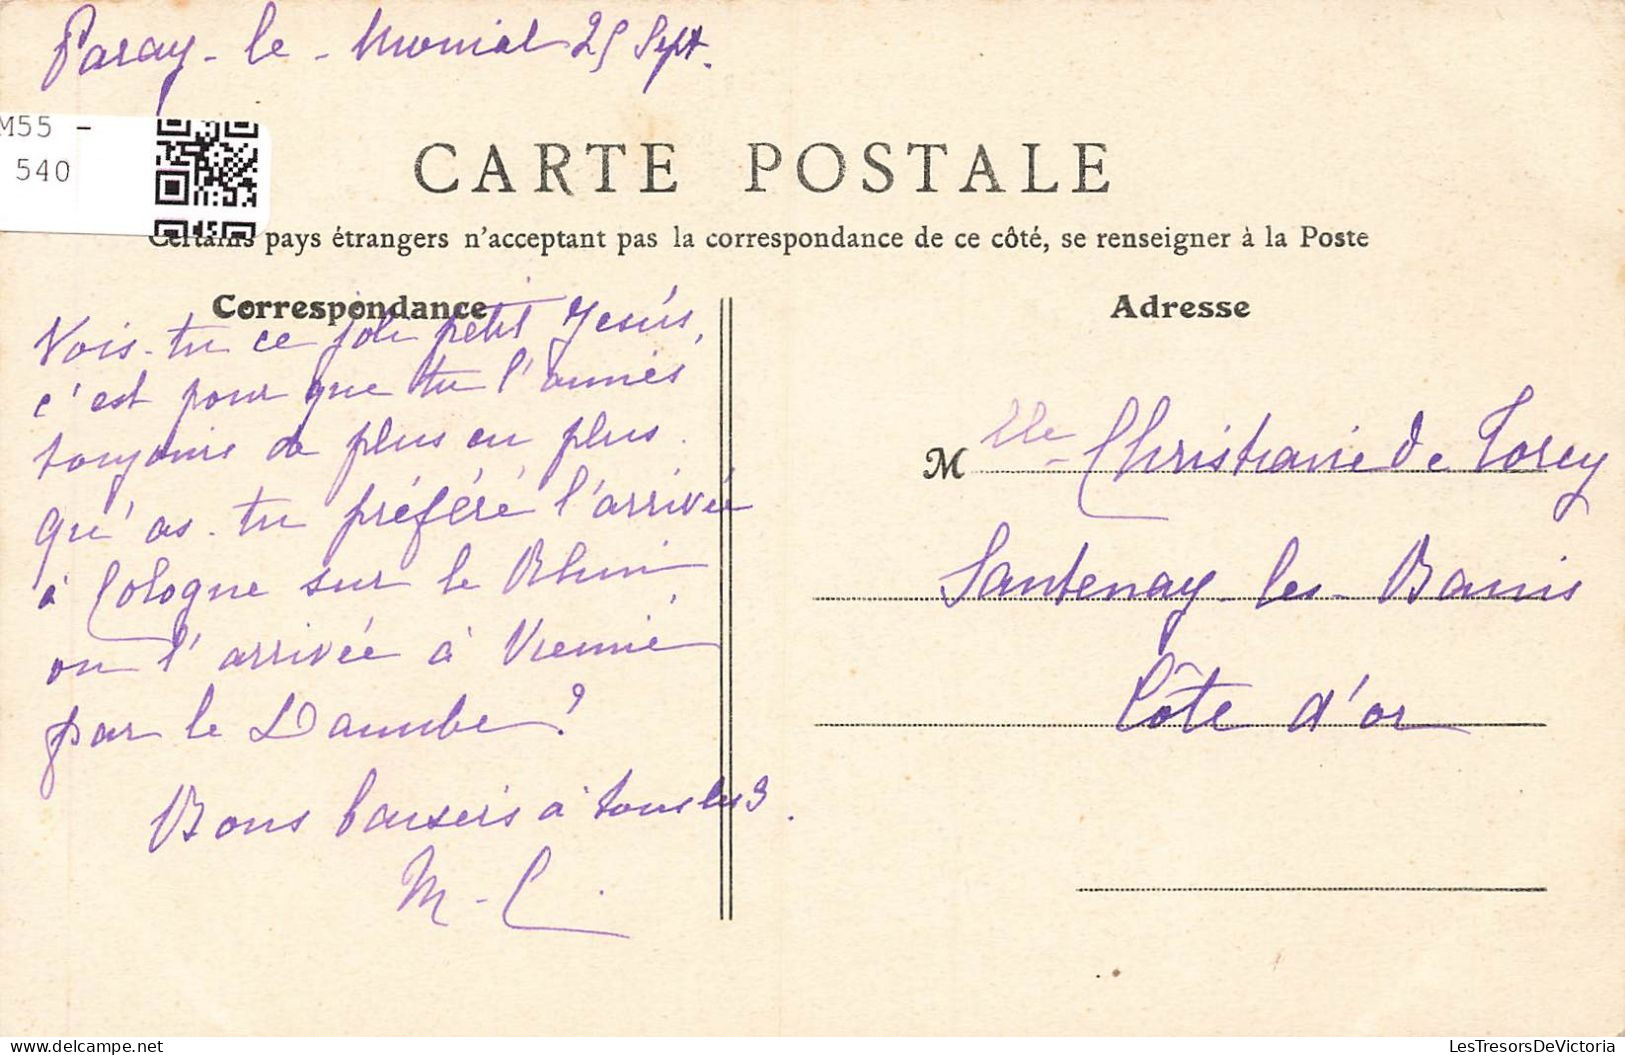 Paray-le-Monial 25 Sept.
M55 -
540
CARTE POSTALE
Certains pays étrangers n'acceptant pas la correspondance de ce côté, se renseigner à la Poste
Correspondance
Vois-tu ce joli petit Jésus,
c'est pour que tu l'aimes
toujours de plus en plus.
Qu'as-tu préféré l'arrivée
à Cologne sur le Rhin
ou l'arrivée à Vienne
par le Danube ?
Bons baisers à tous les 3.
M-C.
Adresse
Mlle Christiane de Torcy
Santenay-les-Bains
Côte d'or
LesTresorsDeVictoria.com